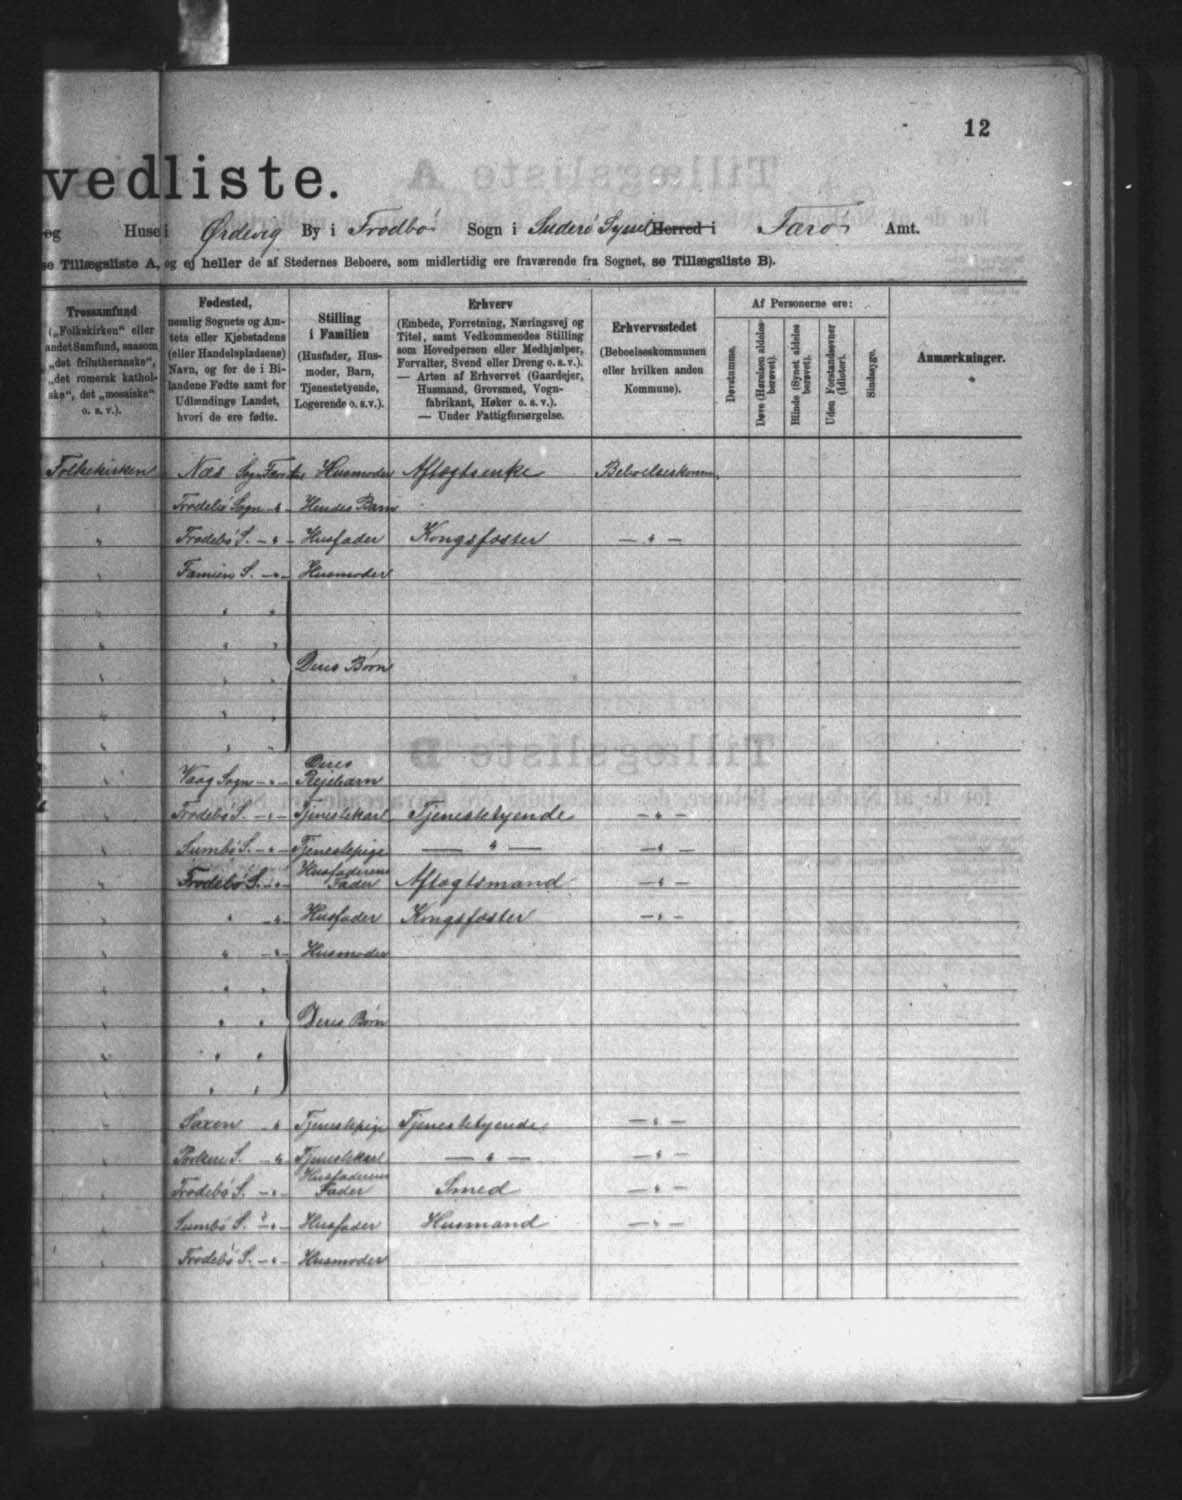 12
vedliste.
og Huse i Ørdevig By i Frodbø Sogn i Suderø Syssel Herred i Færø Amt.
se Tillægsliste A, og ej heller de af Stedernes Beboere, som midlertidig ere fraværende fra Sognet, se Tillægsliste B).
Trossamfund
(„Folkekirken“ eller
andet Samfund, saasom
„det frilutheranske“,
„det romersk kathol-
ske“, det „mosaiske“
o. s. v.).
Fødested,
nemlig Sognets og Am-
tets eller Kjøbstadens
(eller Handelspladsens)
Navn, og for de i Bi-
landene Fødte samt for
Udlændinge Landet,
hvori de ere fødte.
Stilling
i Familien
(Husfader, Hus-
moder, Barn,
Tjenestetyende,
Logerende o. s. v.).
Erhverv
(Embede, Forretning, Næringsvej og
Titel, samt Vedkommendes Stilling
som Hovedperson eller Medhjælper,
Forvalter, Svend eller Dreng o. s. v.).
— Arten af Erhvervet (Gaardejer,
Husmand, Grovsmed, Vogn-
fabrikant, Høker o. s. v.).
— Under Fattigforsørgelse.
Erhvervsstedet
(Beboelseskommunen
eller hvilken anden
Kommune).
Af Personerne ere:
Døvstumme.
Døve (Hørelsen aldeles
berøvet).
Blinde (Synet aldeles
berøvet).
Uden Forstandsevner
(Idioter).
Sindssyge.
Anmærkninger.
Folkekirken Næs Sogn Husmoder Aftægtsenke Beboelseskomm.
" Frodebø Sogn -"- Hendes Barn
" Frodebø S. -"- Husfader Kongsfæster -"-
" Famien S. -"- Husmoder
" " "
" " "
Deres Børn
" " "
" " "
" " "
Deres
" Vaag Sogn -"- Plejebarn
" Frodebø S. -"- Tjenestekarl Tjenestetyende -"-
" Sumbø S. -"- Tjenestepige -"- -"-
Husfaderens
" Frodebø S. -"- Fader Aftægtsmand -"-
" " -"- Husfader Kongsfæster -"-
" " -"- Husmoder
" " "
" " " Deres Børn
" " "
" " "
" Saxen -"- Tjenestepige Tjenestetyende -"-
" Porkeri S. -"- Tjenestekarl -"- -"-
Husfaderens
" Frodebø S. -"- Fader Smed -"-
" Sumbø S. -"- Husfader Husmand -"-
" Frodebø S. -"- Husmoder